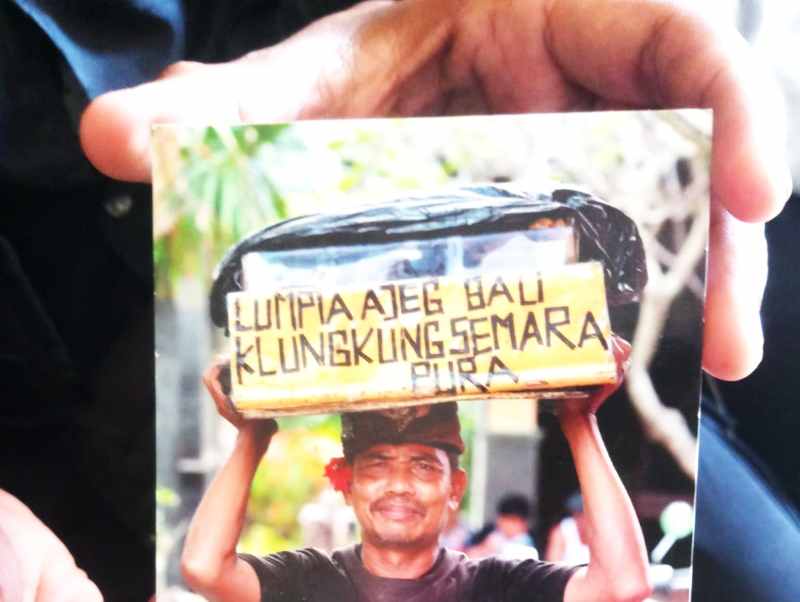 LUMPIA AJEG BALI
KLUNGKUNG SEMARA
PURA